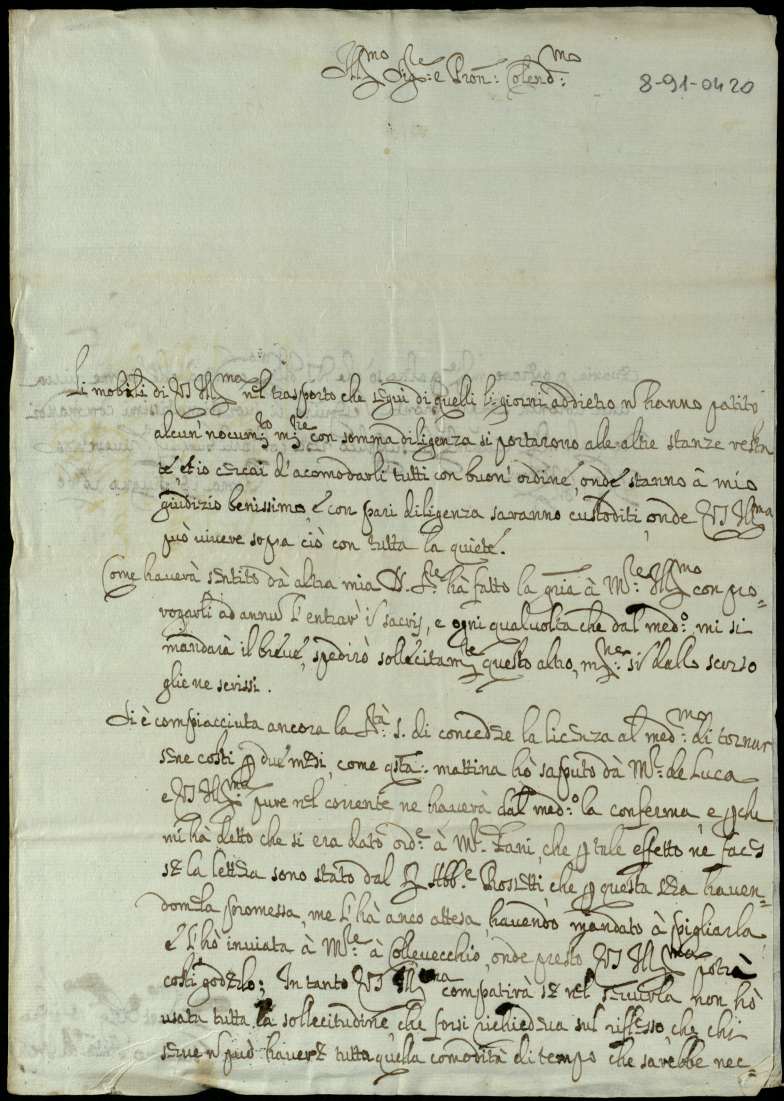 Ill.mo Sig.re e Pron: Colend.mo
8-91-0420
Li mobili di VS Ill.ma nel trasporto che seguì di quelli li giorni addietro n hanno patito
alcun' nocum.to m.tre con somma diligenza si portarono alle altre stanze resta
te, et io cercai d'acomodarli tutti con buon' ordine, onde stanno à mio
giudizio benissimo, e con pari diligenza saranno custoditi, onde VS Ill.ma
può vivere sopra ciò con tutta la quiete.
Come haverà sentito dà altra mia N. S.re hà fatto la gria à M.re Ill.mo con pro-
rogarli ad annu l'entrar' in sacris, e ogni qualvolta che dal med.o mi si
mandarà il breve, spedirò sollecitam.te questo altro, m.ne si dallo scorso
gliene scrissi.
Si è compiacciuta ancora la S.tà S. di concedere la licenza al med.mo di tornar
sene costì p due mesi, come q.sta mattina hò saputo dà M.r de Luca
e VS Ill.ma pure nel corrente ne haverà dal med.o la conferma e pche
mi hà detto che si era dato ord.e à M.r Zani, che p tale effetto ne faces
se la lettera sono stato dal S Abb.e Rosetti che p questa sera haven-
domela promessa, me l'hà anco attesa, havendo mandato à pigliarla,
e l'hò inviata à M.re à Collevecchio, onde presto VS Ill.ma potrà
costì goderlo; In tanto VS Ill.ma compatirà se nel servirla non hò
usata tutta la sollecitudine che forsi richiedeva sul riflesso che chi
serve n può havere tutta quella comodità di tempo che sarebbe nec-